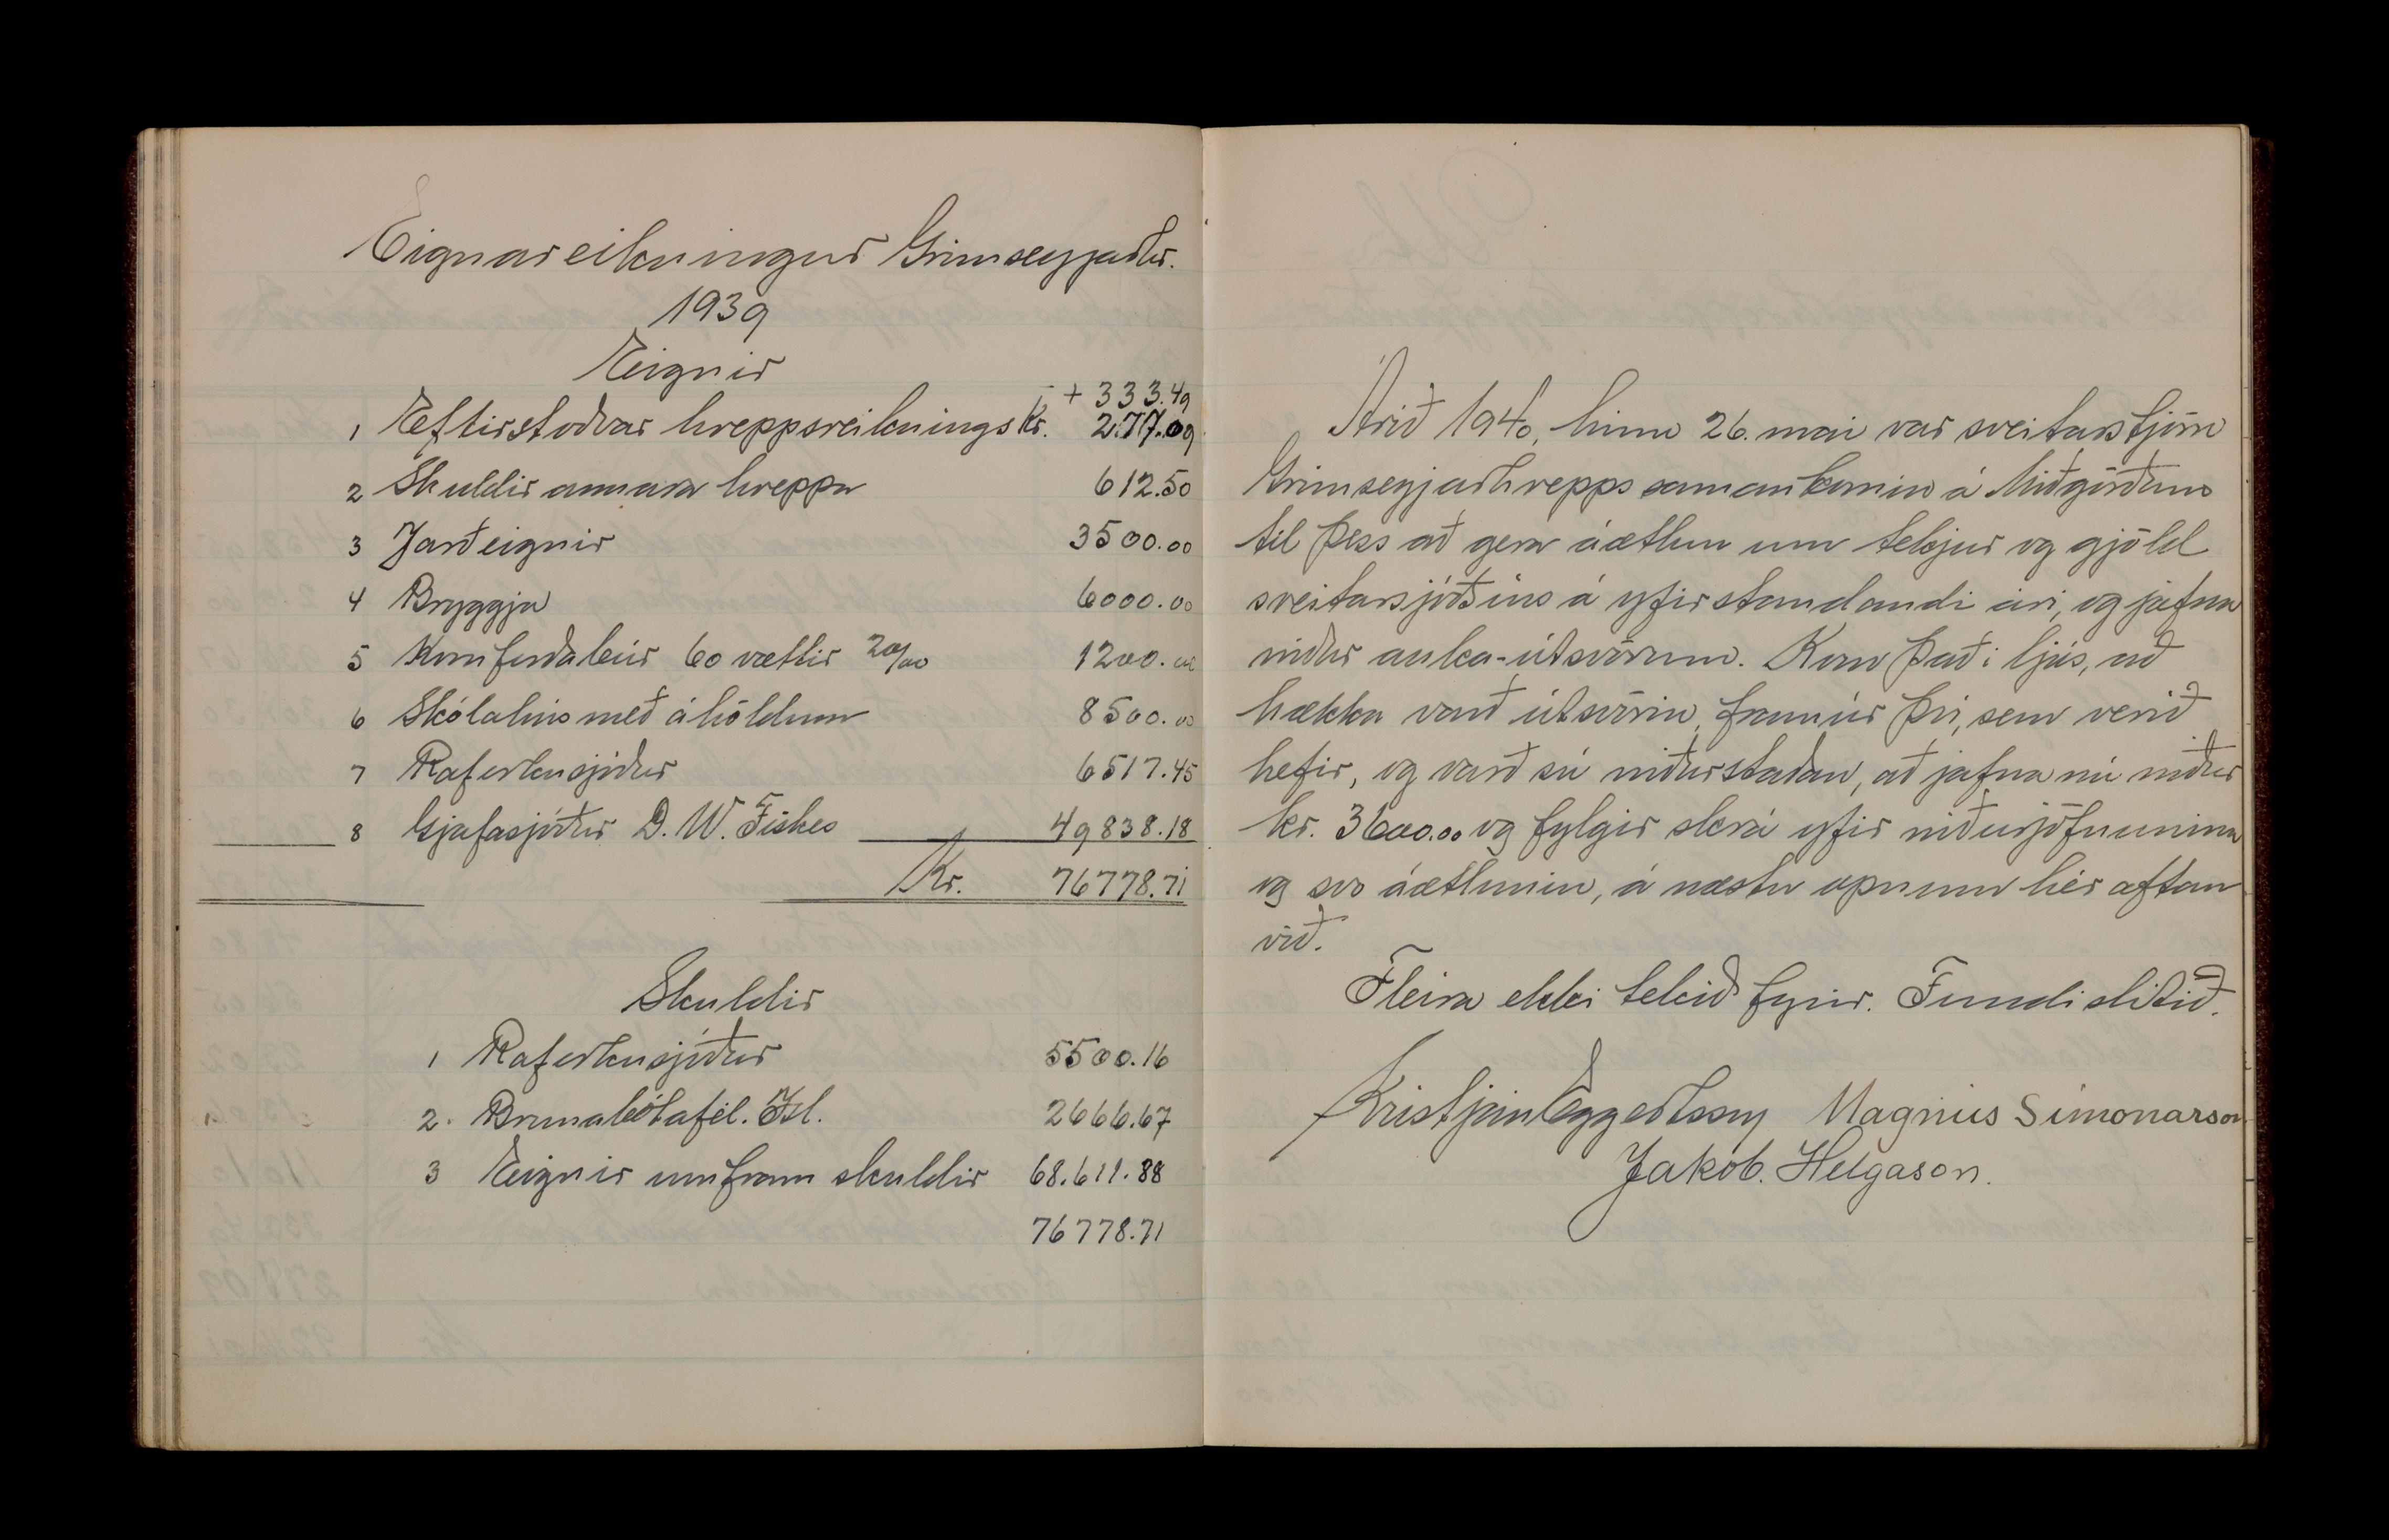 Eignareikningur Grímseyjarhr.
1939
Eignir
+ 333.49
1 Eftirstöðvar hreppsreiknings Kr. 277.09
2 Skuldir annara hreppa 612.50
3 Jarðeignir 3500.00
4 Bryggja 6000.00
5 Kornforðaleir 60 vættir 20/00 1200.00
6 Skólahús með áhöldum 8500.00
7 Raforkusjóður 6517.45
8 Gjafasjóður D. W. Fiskes 49838.18
Kr. 76778.71
Skuldir
1 Raforkusjóður 5500.16
2. Brunabótafél. Ísl. 2666.67
3 Eignir umfram skuldir 68.611.88
76778.71
Árið 1940, hinn 26. maí var sveitarstjórn
Grímseyjarhrepps samankomin á Miðgörðum
til þess að gera áætlun um tekjur og gjöld
sveitarsjóðsins á yfirstandandi ári, og jafna
niður auka-útsvörum. Kom það í ljós, að
hækka varð útsvörin, framúr því, sem verið
hefir, og varð sú niðurstaðan, að jafna nú niður
kr. 3600.00 og fylgir skrá yfir niðurjöfnunina
og svo áætlunin, á næstu opnum hér aftan
við.
Fleira ekki tekið fyrir. Fundi slitið.
Kristján Eggertsson Magnús Símonarson
Jakob. Helgason.